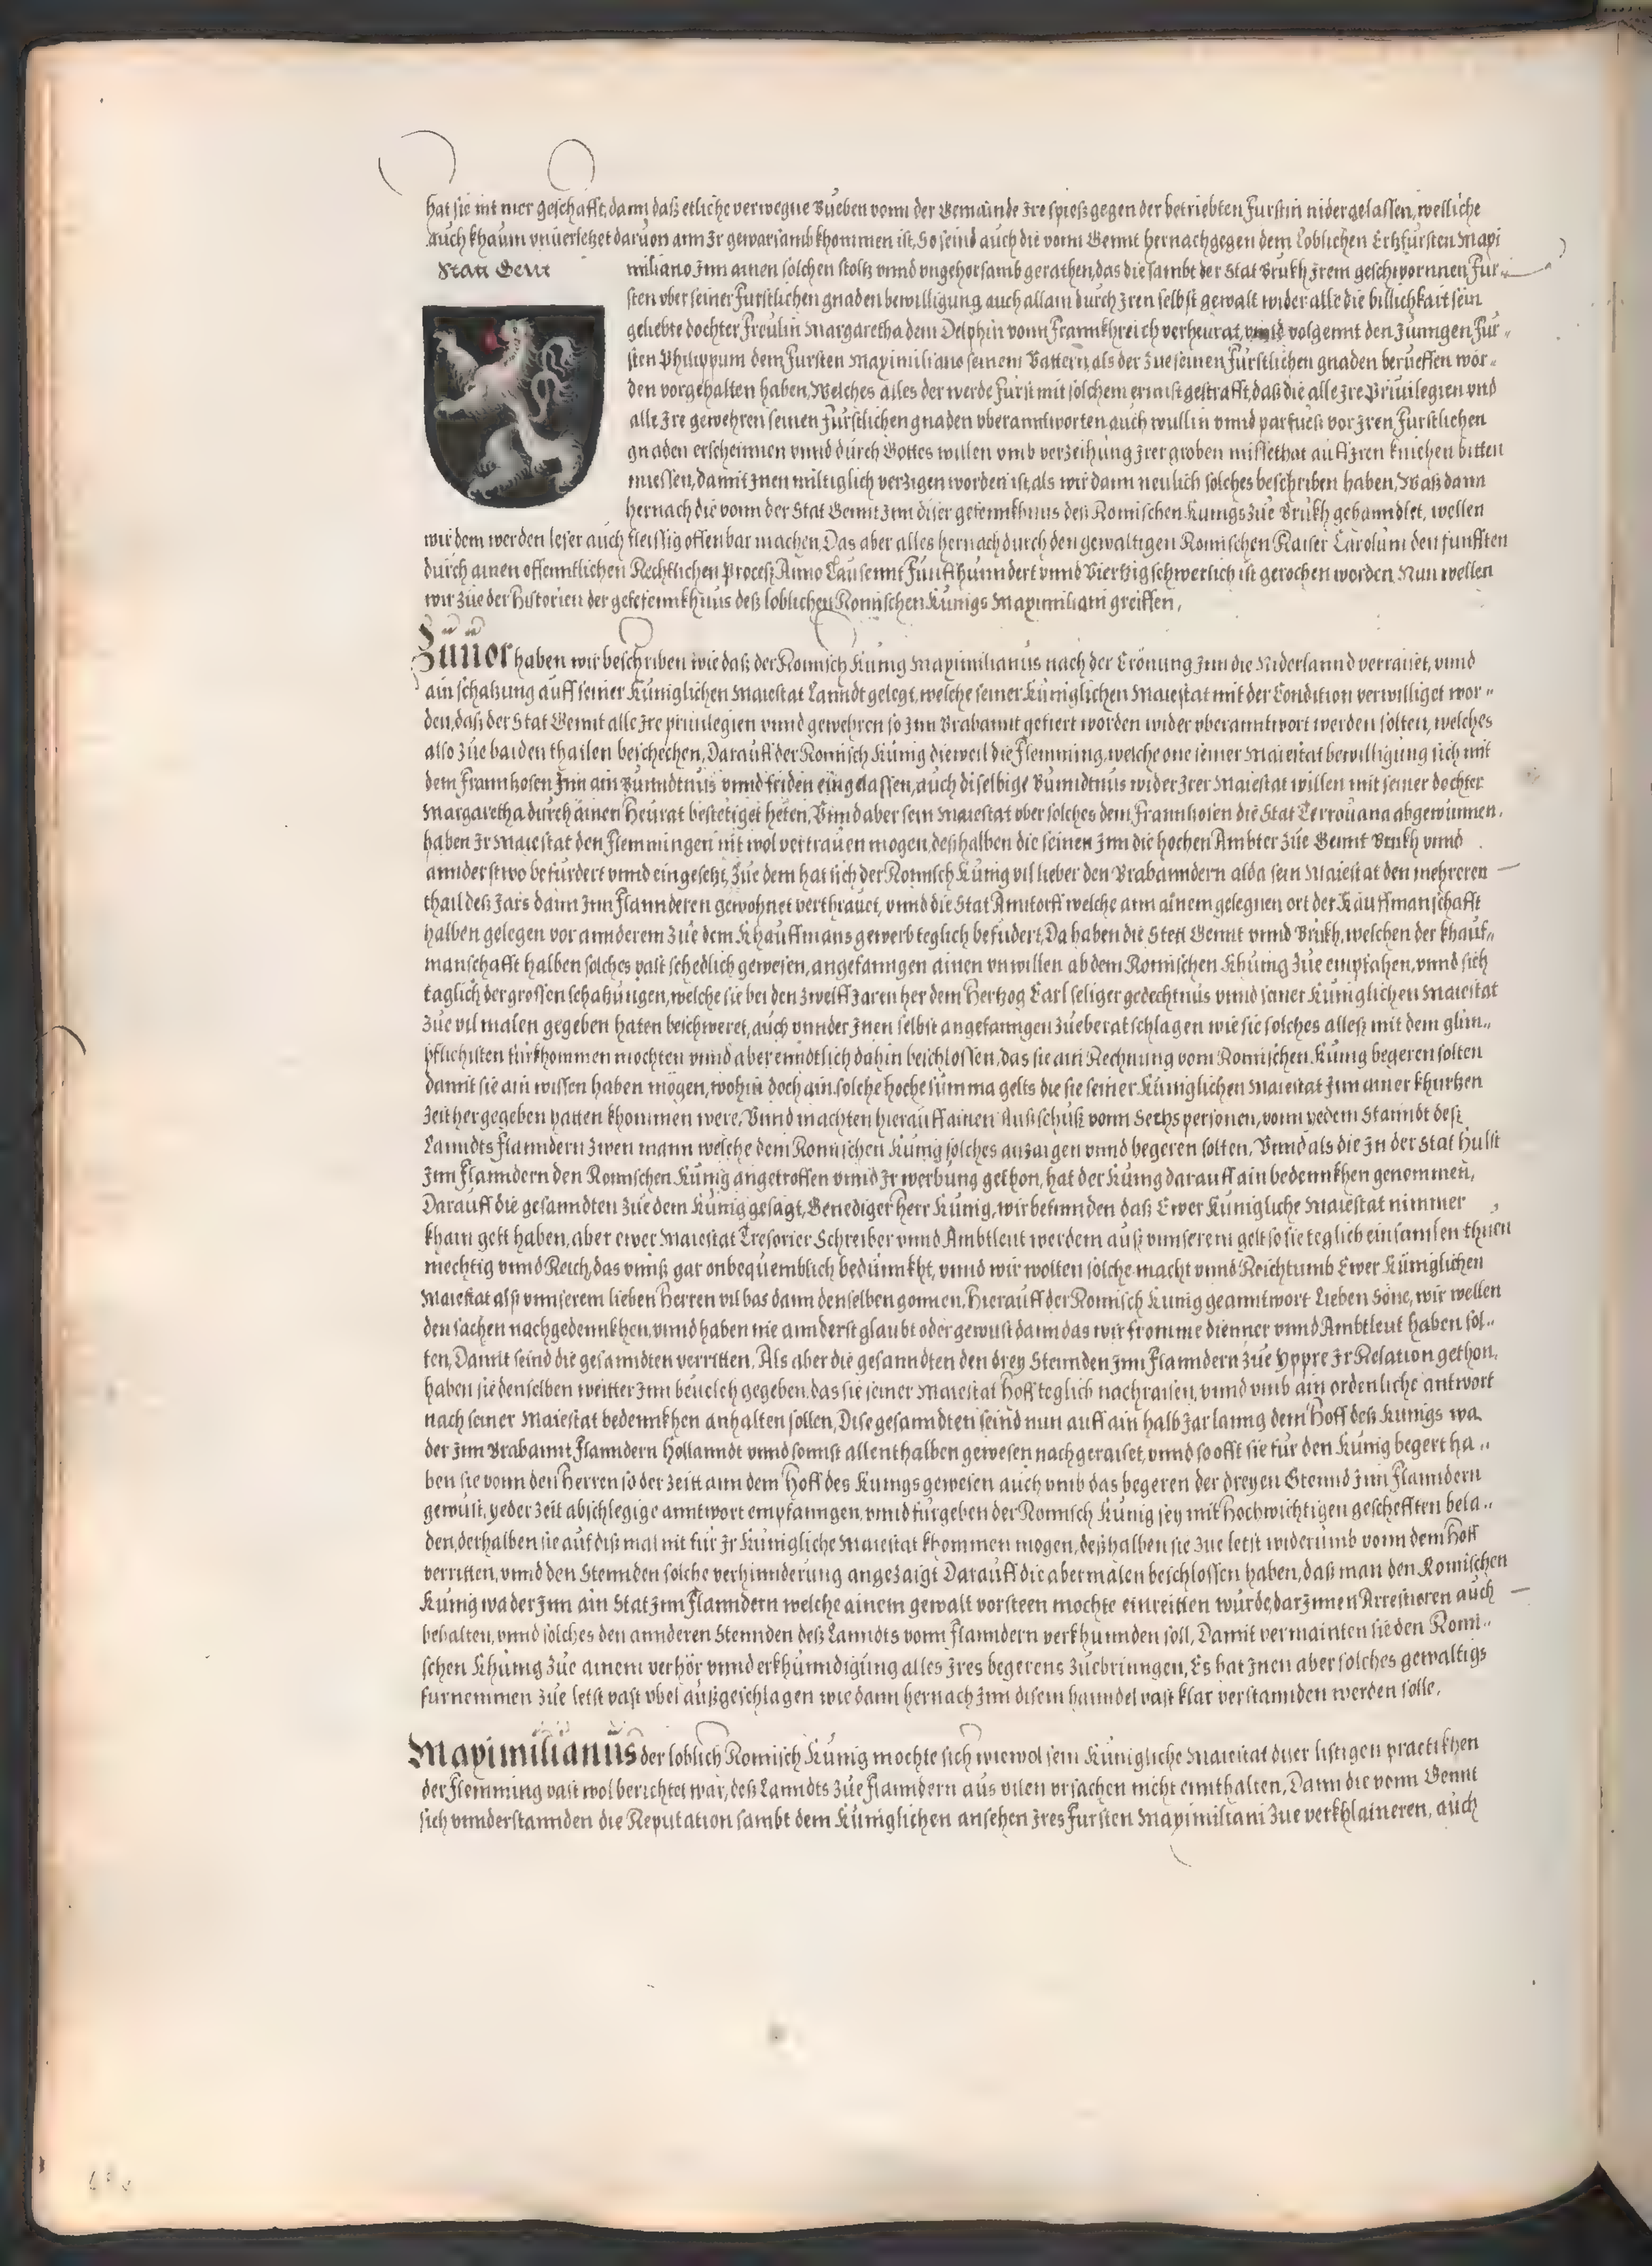 hat sie nit mer geschafft, dann daß etliche verwegne Bueben vonn der Gemainde Ire spieß gegen der betriebten Furstin nidergelassen, welliche
auch khaum vnuerletzet daruon ann Ir gewarsamb khommen ist, So seind auch die vonn Gennt hernach gegen dem loblichen Ertzfürsten Maxi
Statt Gent
miliano Inn ainen solchen stoltz vnnd vngehorsamb gerathen, das die sambt der Stat Brukh Irem geschwornnen Fur-
sten vber seiner Furstlichen gnaden bewilligung auch allain durch Iren selbst gewalt wider alle die billichkait sein
geliebte dochter Freulin Margaretha dem Delphin vonn Frannkhreich verheirat, vnnd volgennt den Jungen Fur-
sten Philippum dem Fursten Maximiliano seinem Vattern, als der zue seinen Furstlichen gnaden berueffen wor-
den vorgehalten haben, Welches alles der werde Fürst mit solchem ernnst gestrafft, daß die alle Ire Priuilegien vnd
alle Ire gewehren seinen Furstlichen gnaden vberanntworten auch wullin vnnd parfuess vor Iren Furstlichen
gnaden erscheinnen vnnd durch Gottes willen vmb verzeihung Irer groben missethat auf Iren knichen bitten
miessen, damit Inen miltiglich verzigen worden ist, als wir dann neulich solches beschriben haben, Waß dann
hernach die vonn der Stat Gennt Inn diser gefennkhnus deß Romischen Kunigs zue Brukh gehanndlet, wellen
wir dem werden leser auch fleissig offenbar machen, Das aber alles hernach durch den gewaltigen Romischen Kaiser Carolum den funfften
durch ainen offenntlichen Rechtlichen Proceß Anno Tausennt Funffhunndert vnnd Viertzig schwerlich ist gerochen worden. Nun wellen
wir zue der Historien der gefefennkhnus deß loblichen Romischen Kunigs Maximiliani greiffen,
Zuuor haben wir beschriben wie daß der Romisch Kunig Maximilianus nach der Crönung Inn die Niderlannd verraiset, vnnd
ain schatzung auff seiner Kuniglichen Maiestat Lanndt gelegt, welche seiner Kuniglichen Maiestat mit der Condition verwilliget wor-
den, daß der Stat Gennt alle Ire priuilegien vnnd gewehren so Inn Brabannt gefiert worden wider vberanntwort werden solten, welches
also zue baiden thailen beschechen, Darauff der Romisch Kunig dieweil die Flemming, welche one seiner Maiestat bewilligung sich mit
dem Frannkosen Inn ain Bunndtnus vnnd friden eingelassen, auch diselbige Bunndtnus wider Irer Maiestat willen mit seiner dochter
Margaretha durch ainen Heurat bestetiget heten, Vnnd aber sein Maiestat vber solches dem Frannkosen die Stat Terrouana abgewunnen,
haben Ir Maiestat den Flemmingen nit wol vertrauen mogen, deßhalben die seinen Inn die hochen Ambter zue Gennt Brukh vnnd
annderstwo befurdert vnnd eingesetzt, Zue dem hat sich der Romisch Kunig vil lieber den Brabanndern alda sein Maiestat den mehreren
thail deß Jars dann Inn Flannderen gewohnet verthrauet, vnnd die Stat Anntorff welche ann ainem gelegnen ort der Kauffmanschafft
halben gelegen vor annderem zue dem Khauffmansgewerb teglich befudert, Da haben die Stett Gennt vnnd Brukh, welchen der khauf-
manschafft halben solches vast schedlich gewesen, angefanngen ainen vnwillen ab dem Romischen Khunig zue empfahen, vnnd sich
taglich der grossen schatzungen, welche sie bei den zwelff Jaren her dem Hertzog Carl seliger gedechtnus vnnd seiner Kuniglichen Maiestat
zue vil malen gegeben haten beschweret, auch vnnder Inen selbst angefanngen zue beratschlagen wie sie solches alleß mit dem glim-
pflichisten fürkhommen mochten vnnd aber enndtlich dahin beschlossen, das sie ain Rechnung vom Romischen Kunig begeren solten
damit sie ain wissen haben mögen, wohin doch ain solche hoche summa gelts die sie seiner Kuniglichen Maiestat Inn ainer khurtzen
zeit her gegeben hatten khommen were, Vnnd machten hierauff ainen Außschuß vonn Sechs personen, vonn yedem Stanndt deß
Lanndts Flanndern zwen mann welche dem Romischen Kunig solches anzaigen vnnd begeren solten, Vnnd als die In der Stat Hulst
Inn Flanndern den Romischen Kunig angetroffen vnnd Ir werbung gethon, hat der Kunig darauff ain bedennkhen genommen,
Darauff die gesanndten zue dem Kunig gesagt, Genediger Herr Kunig, wir befinnden daß Ewer Kunigliche Maiestat nimmer
khain gelt haben, aber ewer Maiestat Tresorier Schreiber vnnd Ambtleut werdem auß vnnserem gelt so sie teglich einsamlen thuen
mechtig vnnd Reich, das vnnß gar onbequemblich bedunnkht, vnnd wir wolten solche macht vnnd Reichtumb Ewer Kuniglichen
Maiestat alß vnnserem lieben Herren vil bas dann denselben gonnen, Hierauff der Romisch Kunig geanntwort Lieben Söne, wir wellen
den sachen nachgedennkhen, vnnd haben nie annderst glaubt oder gewust dann das wir fromme dienner vnnd Ambtleut haben sol-
ten, Damit seind die gesanndten verritten, Als aber die gesanndten den drey Stennden Inn Flanndern zue Yppre Ir Relation gethon,
haben sie denselben weitter Inn beuelch gegeben, das sie seiner Maiestat Hoff teglich nachraisen, vnnd vmb ain ordenliche antwort
nach seiner Maiestat bedennkhen anhalten sollen, Dise gesanndten seind nun auff ain halb Jar lanng dem Hoff deß Kunigs wa
der Inn Brabannt Flanndern Hollanndt vnnd sonnst allenthalben gewesen nachgeraiset, vnnd so offt sie für den Kunig begert ha-
ben sie vonn den Herren so der zeit ann dem Hoff des Kunigs gewesen auch vmb das begeren der dreyen Stennd Inn Flanndern
gewust, yeder zeit abschlegige anntwort empfanngen, vnnd furgeben der Romisch Kunig sey mit Hochwichtigen geschefften bela-
den, derhalben sie auf diß mal nit für Ir Kunigliche Maiestat khommen mogen, deßhalben sie zue letst widerumb vonn dem Hoff
verritten, vnnd den Stennden solche verhinnderung angezaigt Darauff die abermalen beschlossen haben, daß man den Romischen
Kunig wa der Inn ain Stat Inn Flanndern welche ainem gewalt vorsteen mochte einreitten wurde, darinnen Arrestieren auch
behalten, vnnd solches den annderen Stennden deß Lanndts vonn Flanndern verkhunnden soll, Damit vermainten sie den Romi-
schen Khunig zue ainem verhör vnnd erkhunndigung alles Ires begerens zuebrinngen, Es hat Inen aber solches gewaltigs
furnemmen zue letst vast vbel außgeschlagen wie dann hernach Inn disem hanndel vast klar verstannden werden solle,
Maximilianus der loblich Romisch Kunig mochte sich wiewol sein Kunigliche Maiestat diser listigen practikhen
der Flemming vast wol berichtet war, deß Lanndts zue Flanndern aus vilen vrsachen nicht ennthalten, Dann die vonn Gennt
sich vnnderstannden die Reputation sambt dem Kuniglichen ansehen Ires Fursten Maximiliani zue verkhlaineren, auch